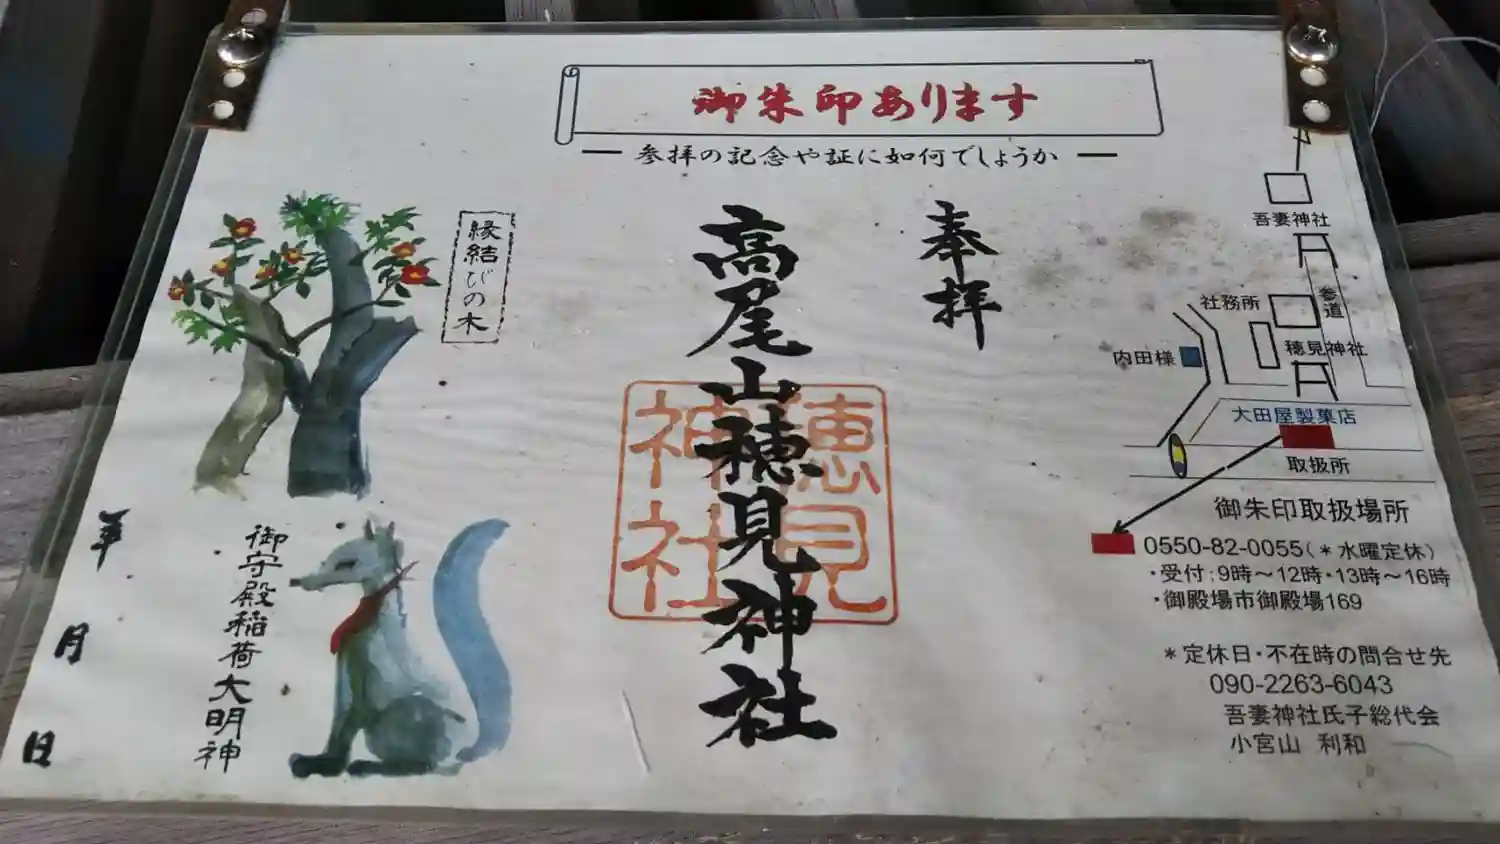 御朱印あります
参拝の記念や証に如何でしょうか
奉拝
高尾山穂見神社
穂見
神社
縁結びの木
御守殿稲荷大明神
年
月
日
吾妻神社
参道
社務所
穂見神社
内田様
大田屋製菓店
取扱所
御朱印取扱場所
0550-82-0055(＊水曜定休)
・受付:9時～12時・13時～16時
・御殿場市御殿場169
＊定休日・不在時の問合せ先
090-2263-6043
吾妻神社氏子総代会
小宮山 利和